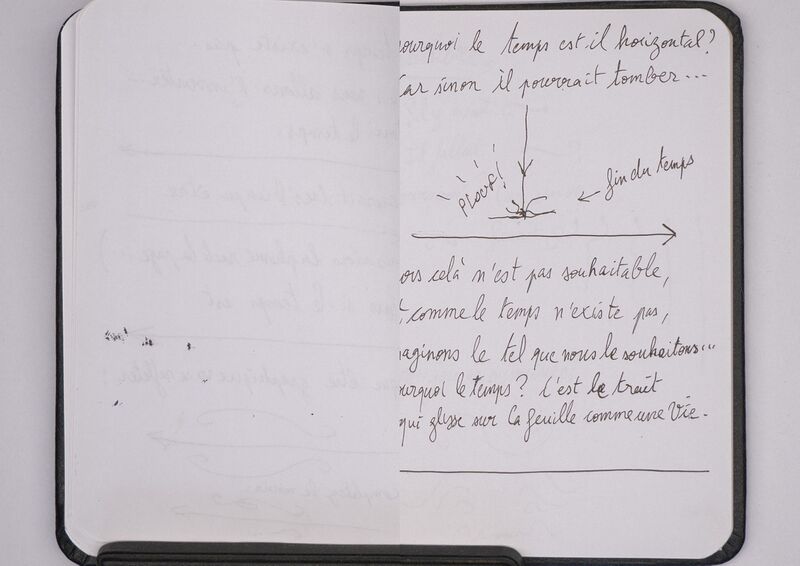 ourquoi le temps est-il horizontal?
ar sinon il pourrait tomber...
PLOUF!
fin du temps
ors celà n'est pas souhaitable,
, comme le temps n'existe pas,
aginons le tel que nous le souhaitons...
ourquoi le temps? C'est le trait
qui glisse sur la feuille comme une Vie.